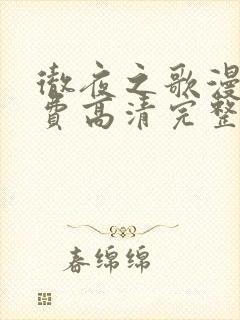 徹夜之歌漫
費高清完整
春绵绵